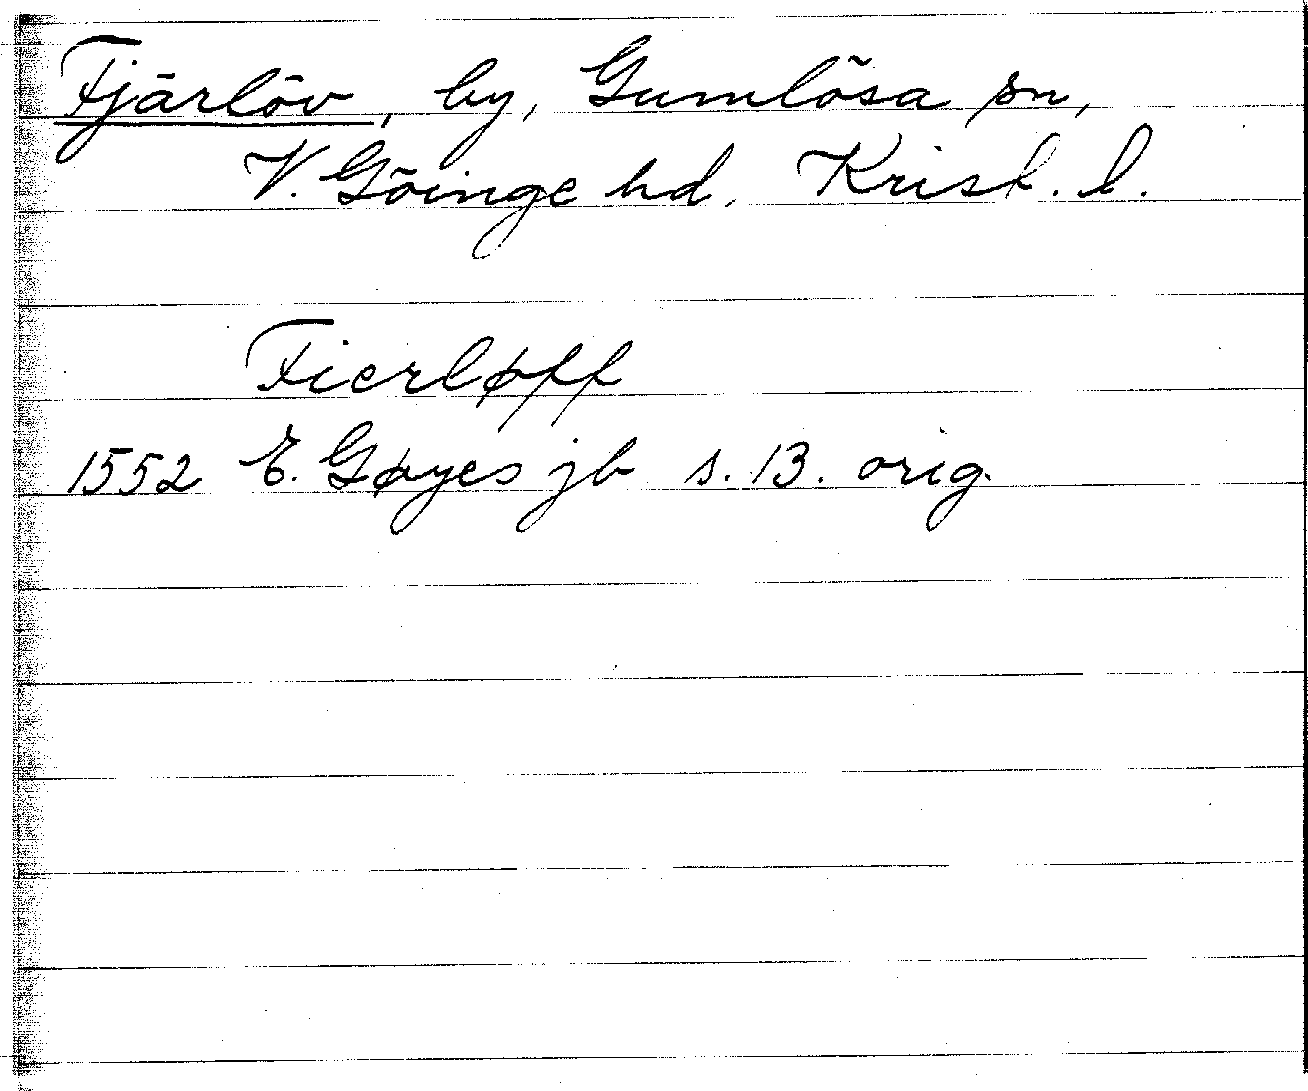 Fjärlöv, by, Gumlösa sn,
V. Göinge hd, Krist. l.
Fierløff
1552 E. Gøyes jb s. 13. orig.